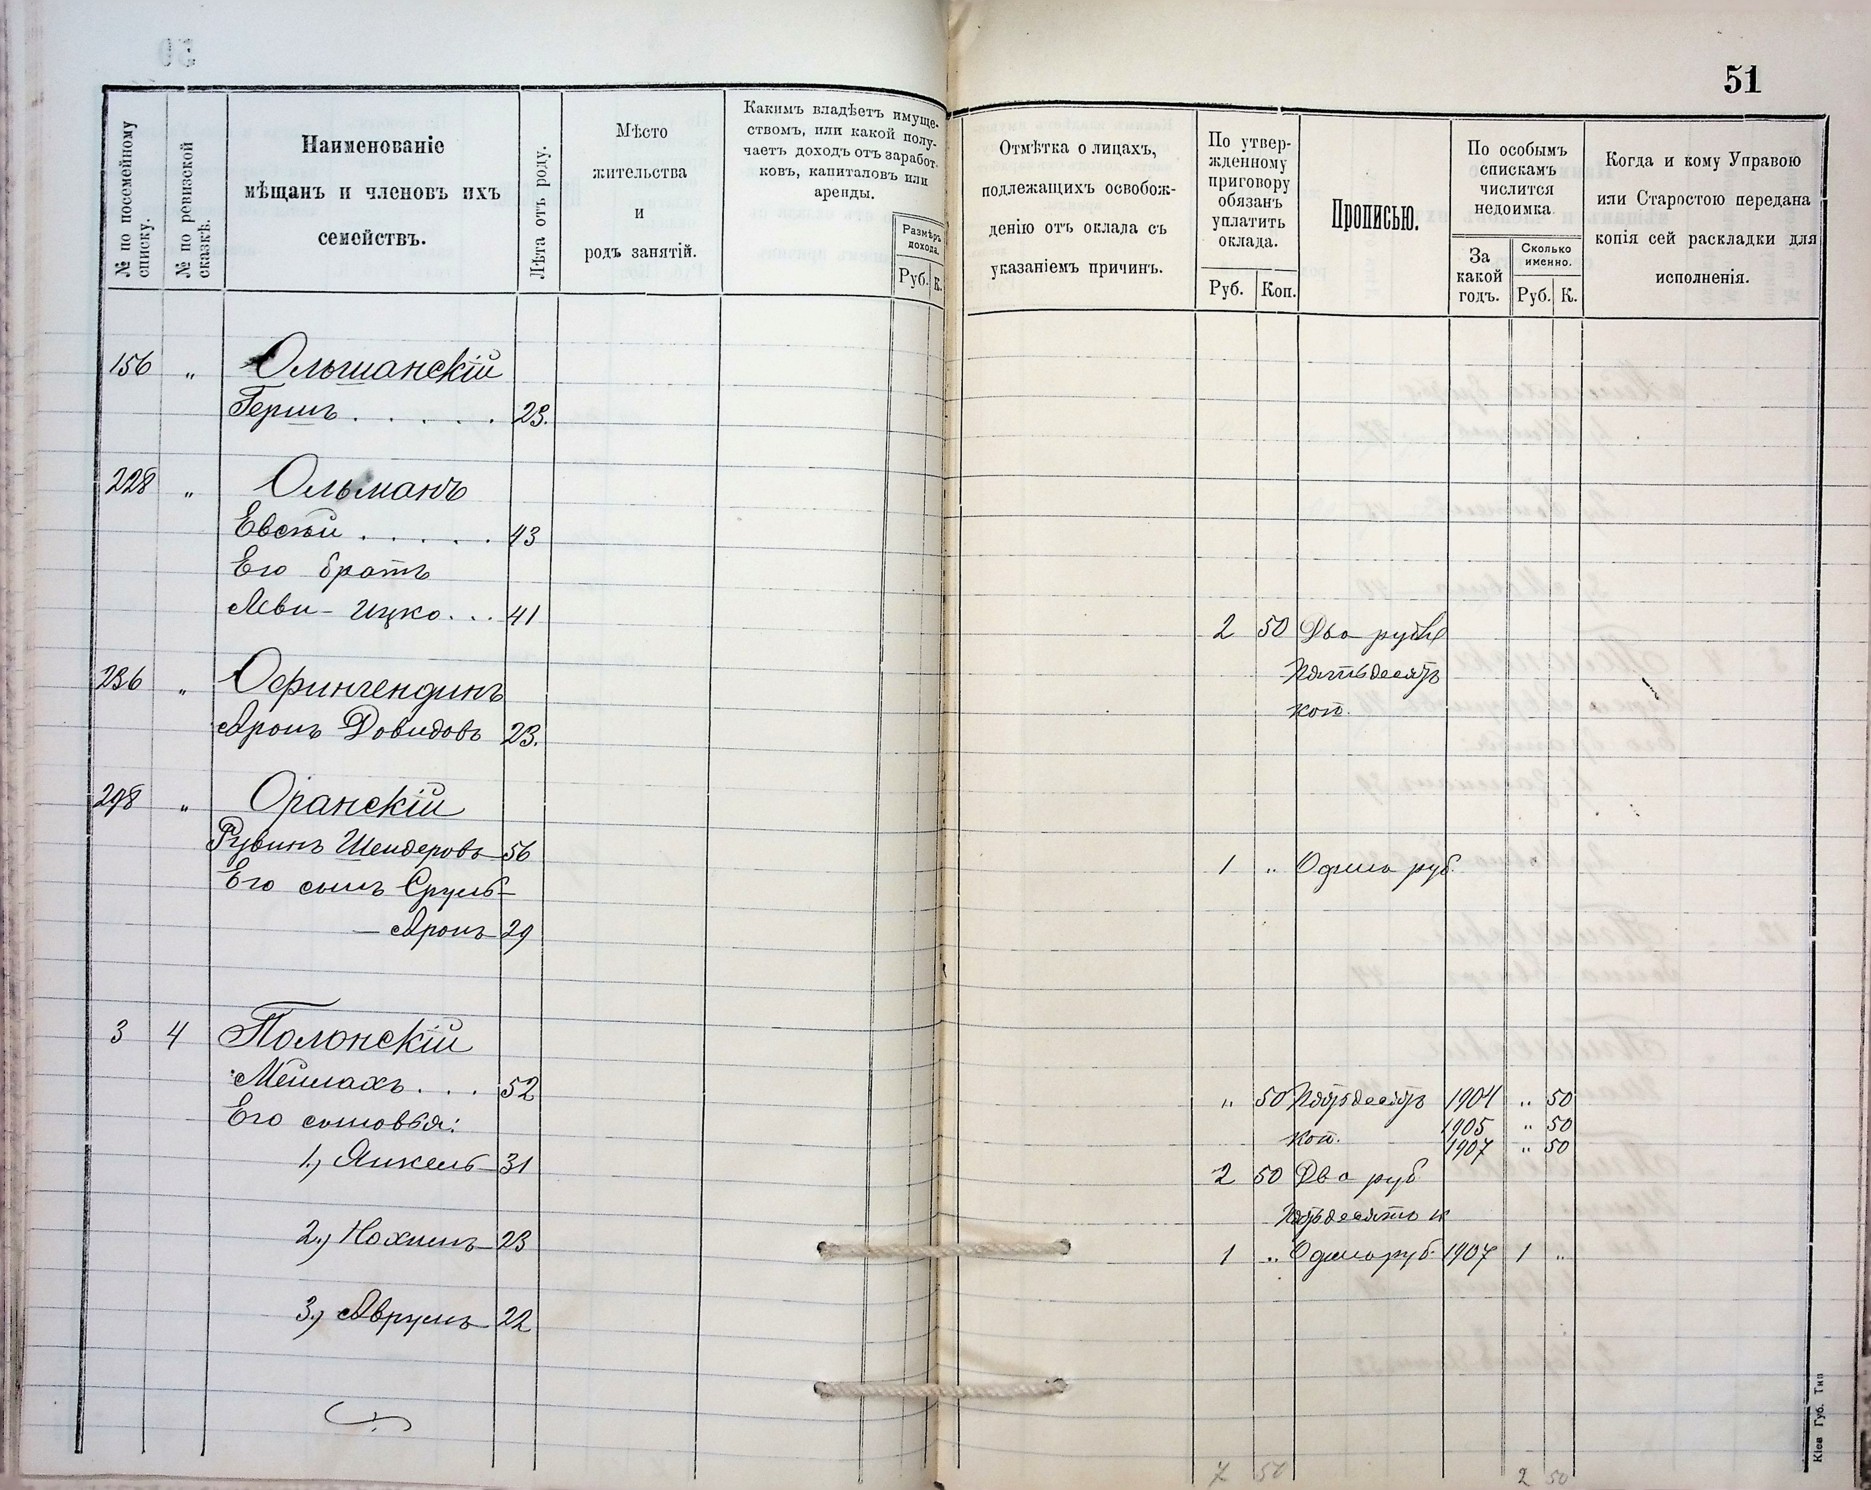 51
№ по посемейному списку.
№ по ревизской сказкѣ.
Наименованіе
мѣщанъ и членовъ ихъ
семействъ.
Лѣта отъ роду.
Мѣсто
жительства
и
родъ занятій.
Какимъ владѣетъ имуще-
ствомъ, или какой полу-
чаетъ доходъ отъ заработ-
ковъ, капиталовъ или
аренды.
Размѣръ
дохода.
Руб. К.
Отмѣтка о лицахъ,
подлежащихъ освобож-
денію отъ оклада съ
указаніемъ причинъ.
По утвер-
жденному
приговору
обязанъ
уплатить
оклада.
Руб. Коп.
Прописью.
По особымъ
спискамъ
числится
недоимка
За
какой
годъ.
Сколько
именно.
Руб. К.
Когда и кому Управою
или Старостою передана
копія сей раскладки для
исполненія.
156 „ Ольшанскій
Гершъ . . . . . 23.
228 „ Ольманъ
Евсѣй . . . . . 43
Его братъ
Леви-Ицко . . . 41 2 50 Два рубл
Пятьдесятъ
коп.
236 „
Аронъ Довидовъ 23.
298 „ Оранскій
Рувинъ Шендеровъ 56 1 „ Одинъ руб.
Его сынъ Сруль-
- Аронъ 29
3 4 Полонскій
Мейлахъ . . . 52 „ 50 Пятьдесятъ 1904 „ 50
Его сыновья: коп. 1905 „ 50
1907 „ 50
1.) Янкель 31 2 50 Два руб
Пятьдесятъ к
2.) Нохимъ 23 1 „ Одинъ руб. 1907 1 „
3.) Аврумъ 22
7 50 2 50
Кіев Губ. Тип